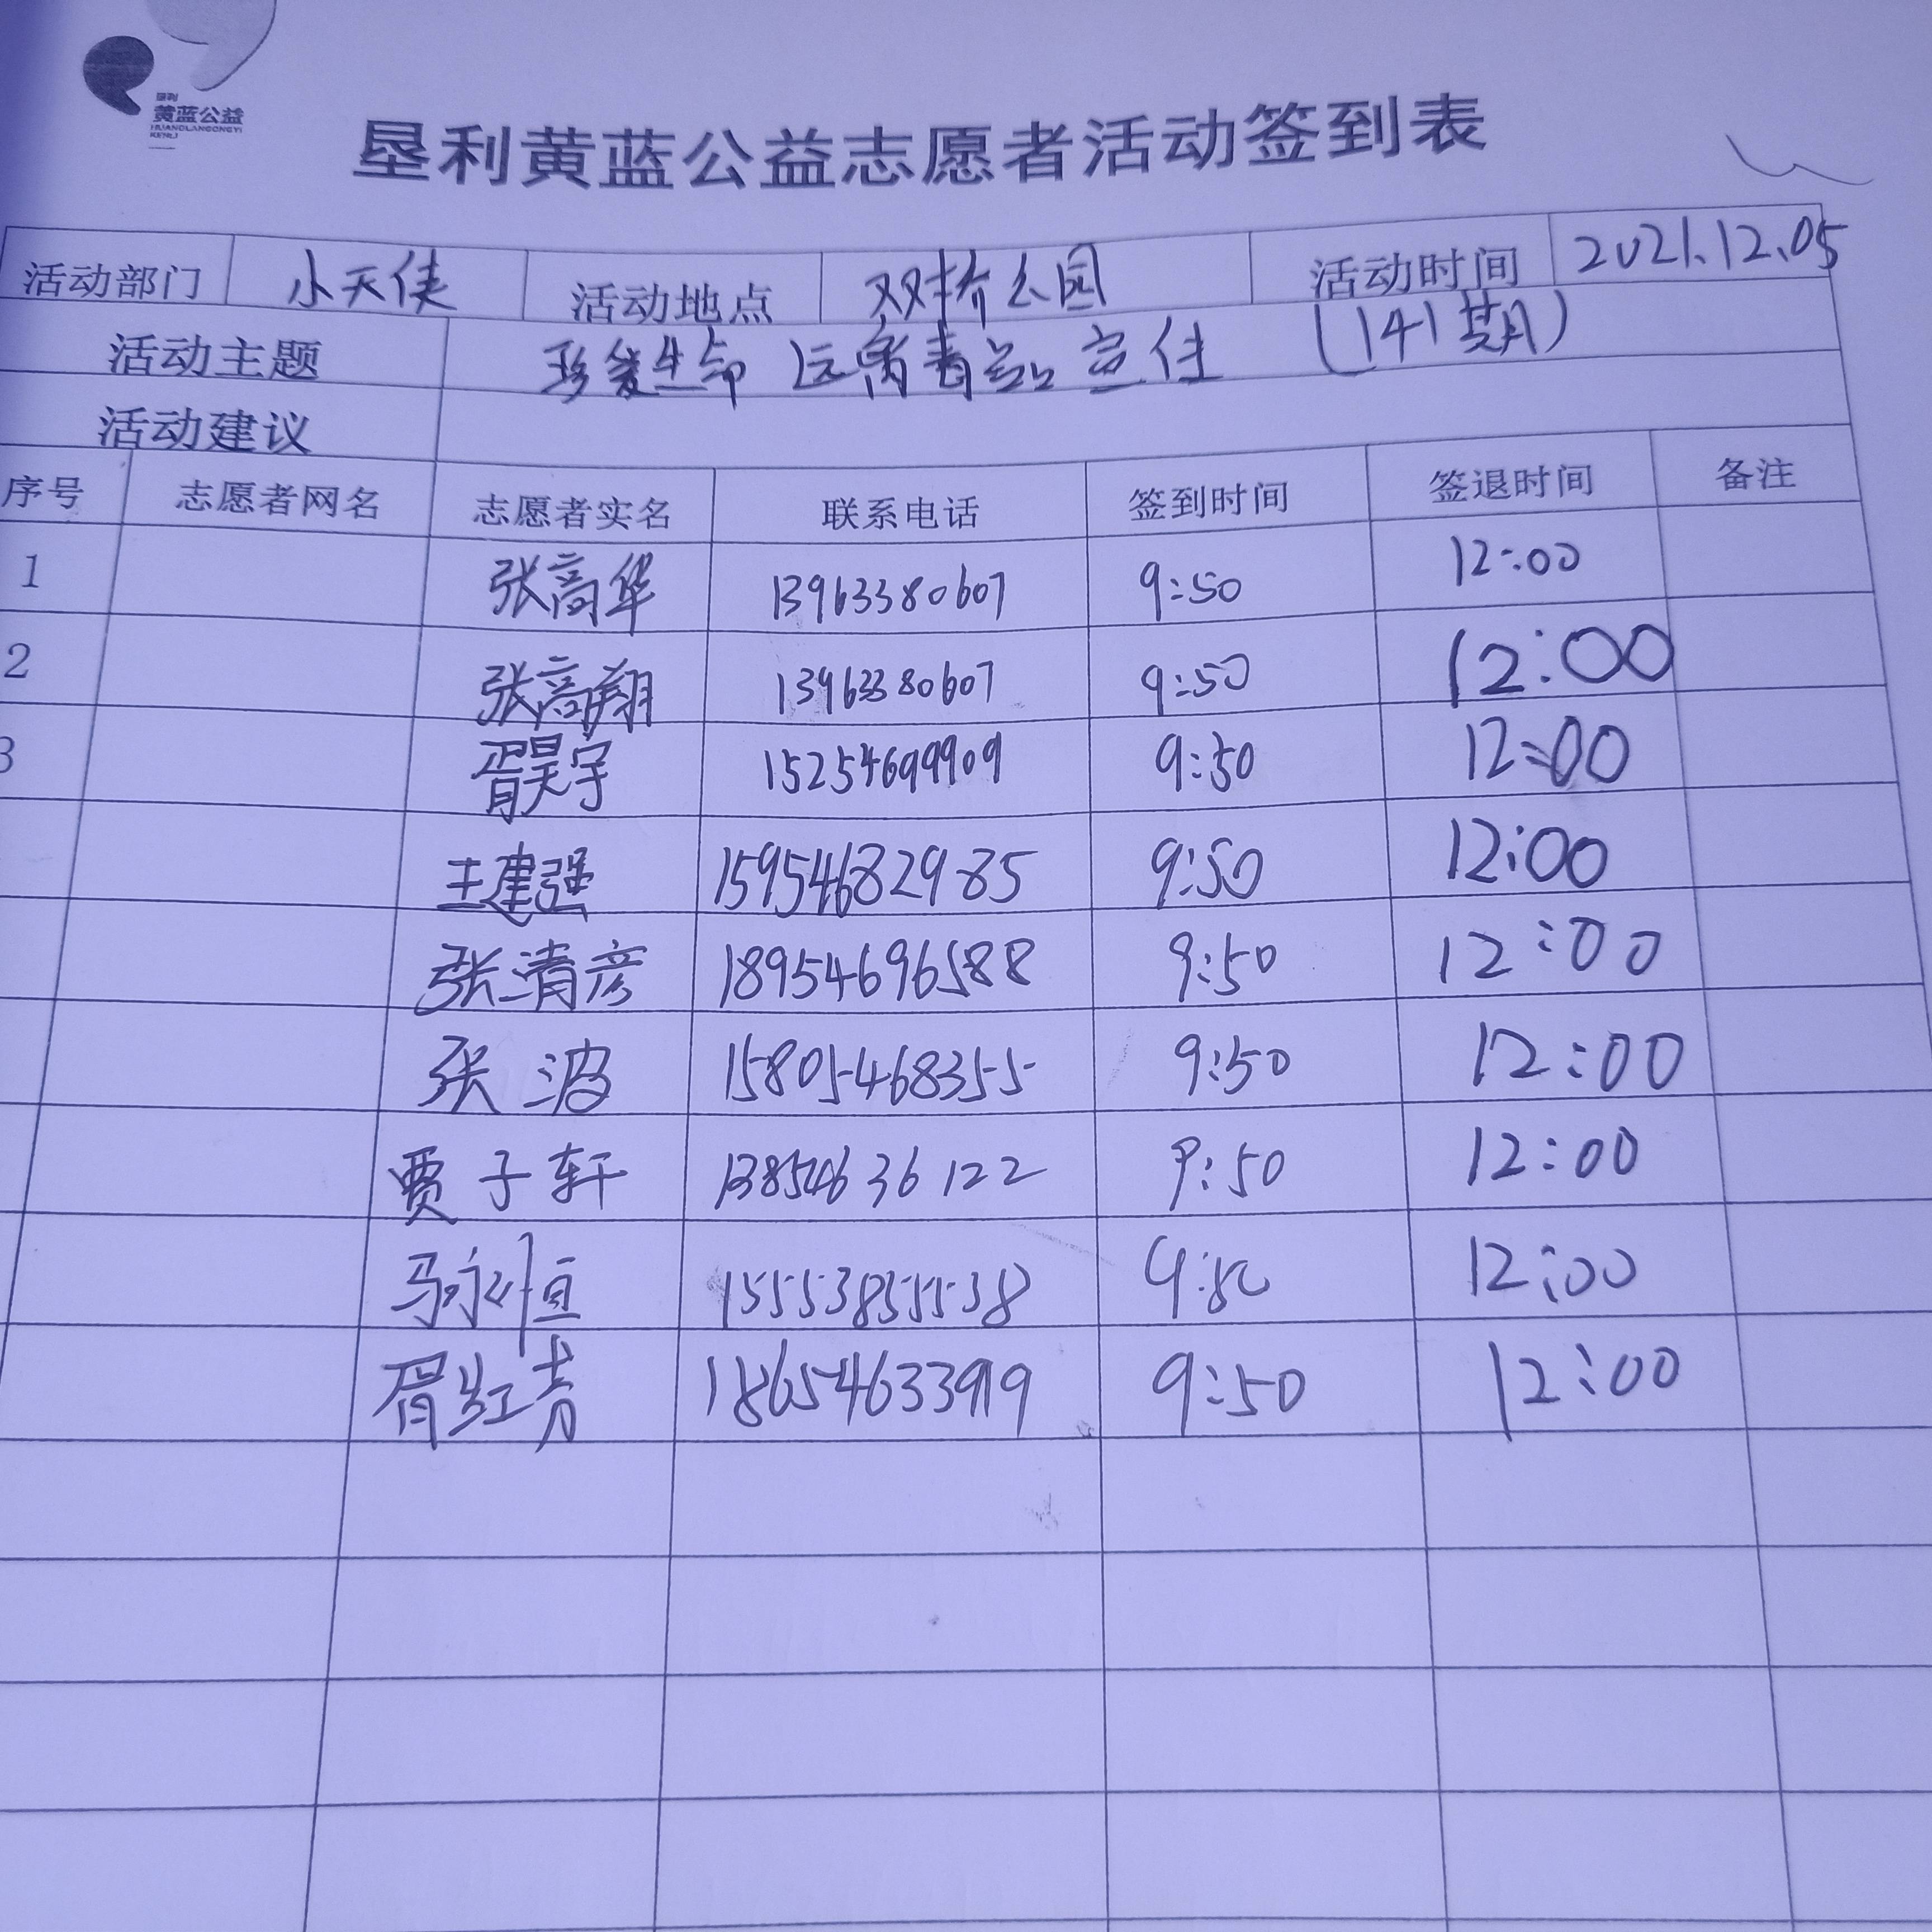 垦利
黄蓝公益
HUANGLANGONGYI
KENLI
垦利黄蓝公益志愿者活动签到表
活动部门 小天使 活动地点 双桥公园 活动时间 2021.12.05
活动主题 珍爱生命 远离毒品宣传 (141期)
活动建议
序号 志愿者网名 志愿者实名 联系电话 签到时间 签退时间 备注
1 张高华 13963380607 9:50 12:00
2 张高翔 13963380607 9:50 12:00
3 胥昊宇 15254699909 9:50 12:00
王建强 15954682985 9:50 12:00
张清彦 18954696588 9:50 12:00
张波 15805468355 9:50 12:00
贾子轩 13854636122 9:50 12:00
马咏恒 15553855538 9:50 12:00
胥红芳 18654633919 9:50 12:00